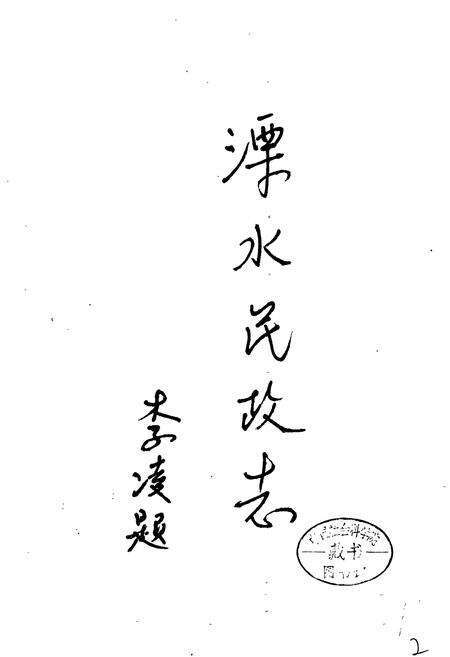 溧水民政志
李凌题
藏书
2